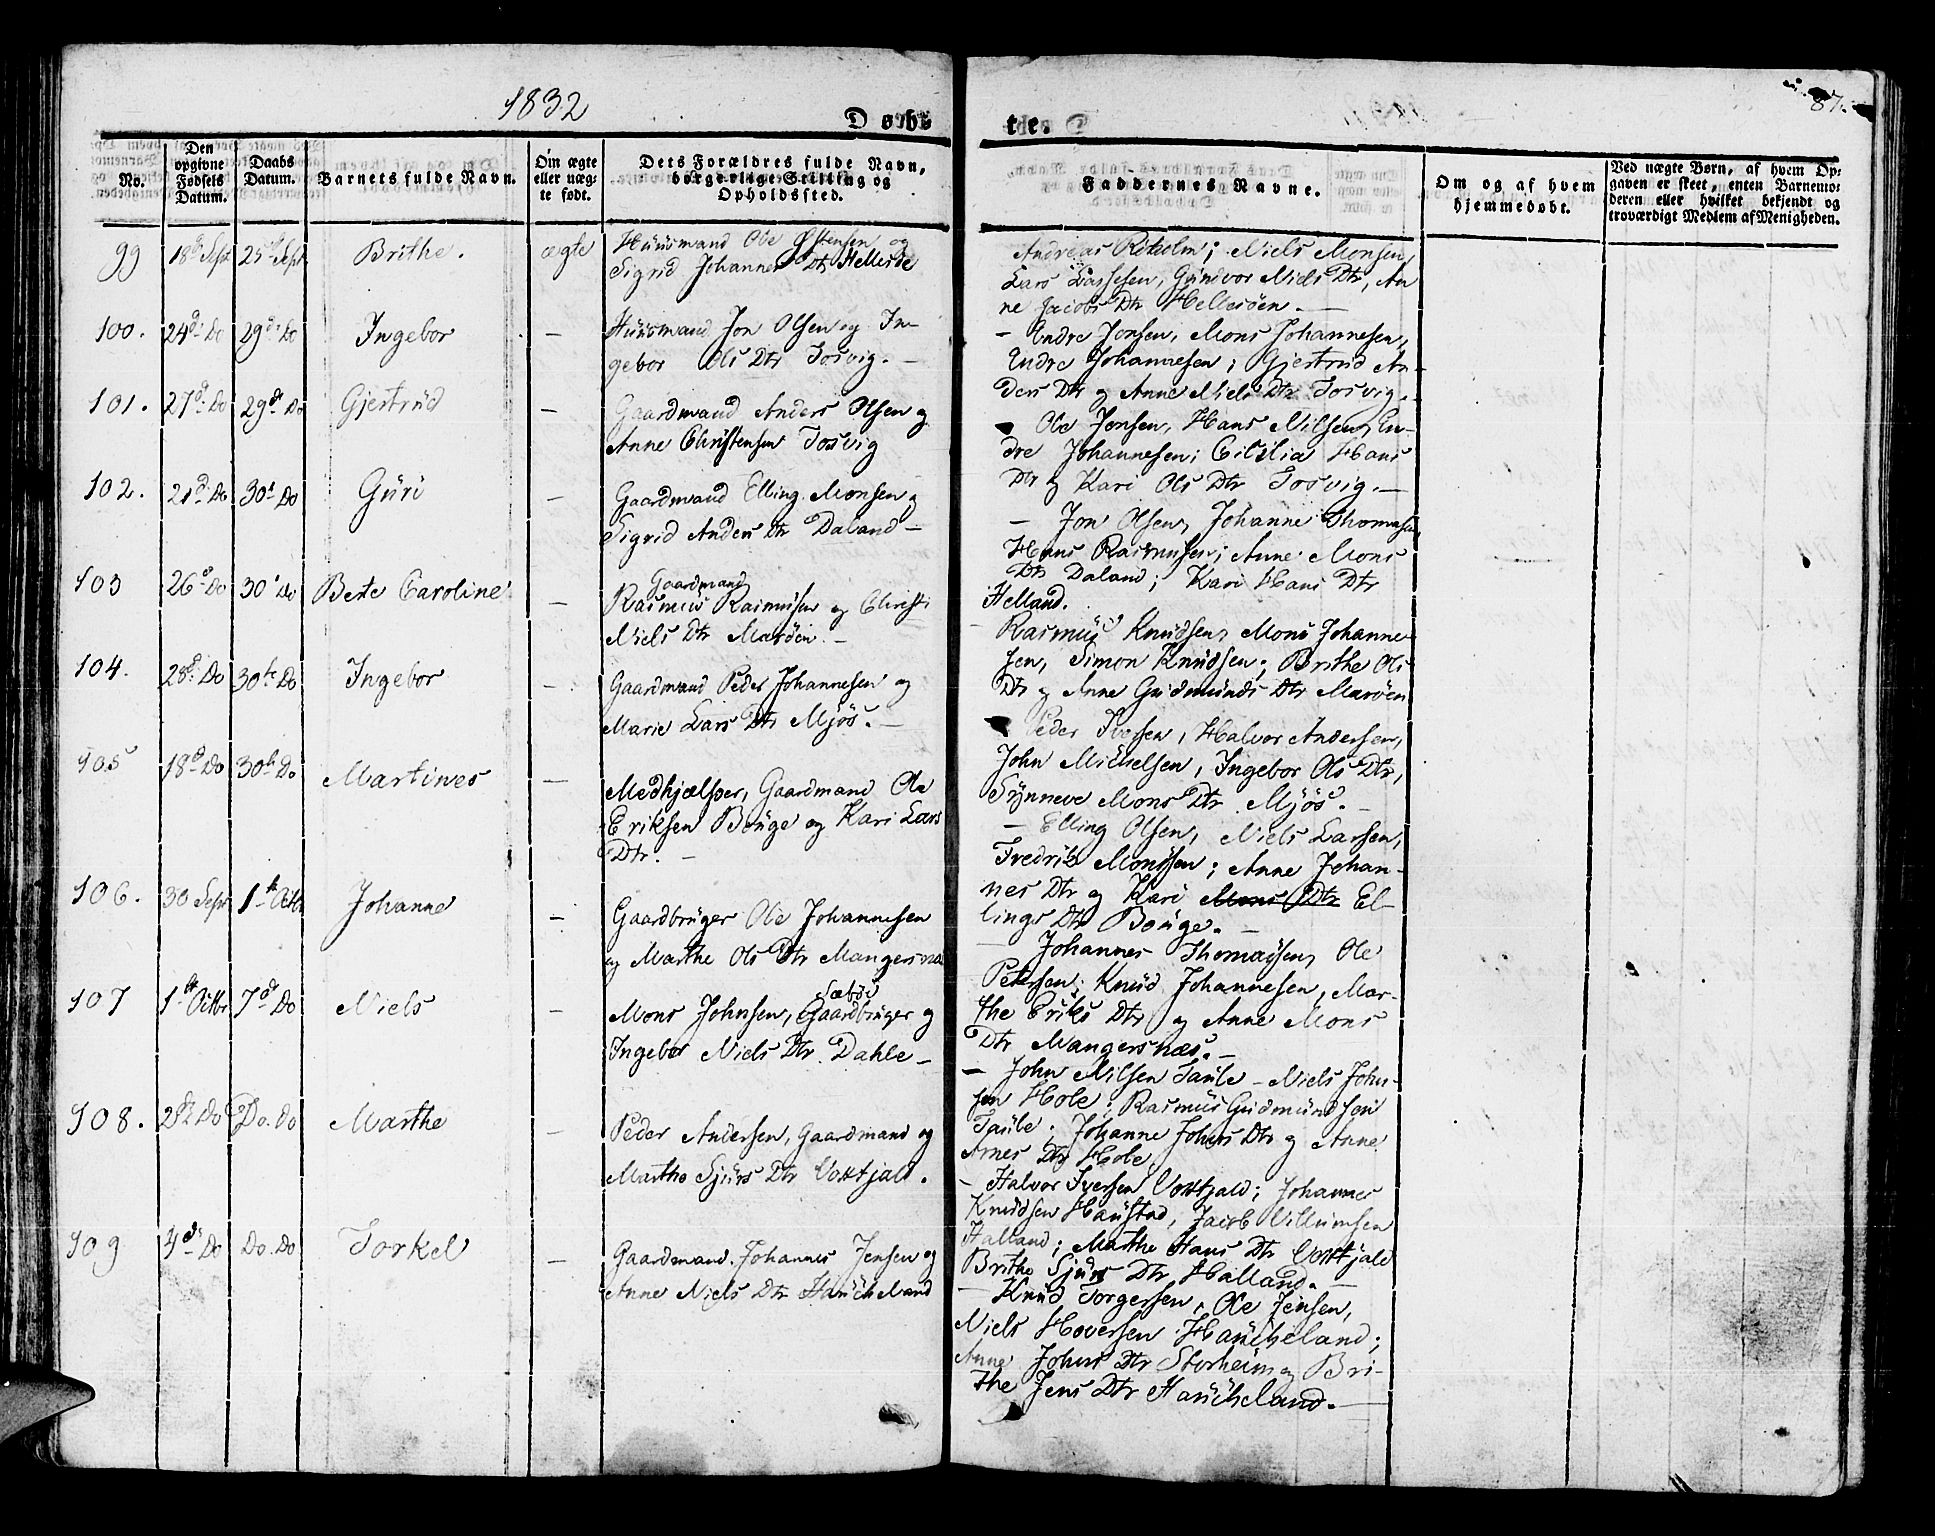 1832
Døbte.
87.
No.
Den opgivne Fødsels Datum.
Daabs Datum.
Barnets fulde Navn.
Om ægte eller uægte født.
Dets Forældres fulde Navn, borgerlige Stilling og Opholdssted.
Faddernes Navne.
Om og af hvem hjemmedøbt.
Ved uægte Børn, af hvem Opgaven er skeet, enten Barnemoderen eller hvilket bekjendt og troværdigt Medlem af Menigheden.
99 18de Sept 25de Sept Brithe. ægte
Huusmand Ole Østensen og
Sigrid Johannes Dtr Hellesøe
Andreas Roholm; Niels Monsen,
Lars Lassesen, Gundvor Niels Dtr, An
ne Jacobs Dtr Hellesøen. —
100. 24d: Do 29d: Do Ingebor —
Huusmand Jon Olsen og In-
gebor Ols Dtr Tosvig. —
— Endre Jonsen, Mons Johannesen,
Endre Johannesen; Gjertrud An-
ders Dtr og Anne Niels Dtr Tosvig.
101. 27d: Do 29de Do Gjertrud —
Gaardmand Anders Olsen og
Anne Christensen Tosvig
Ole Jonsen, Hans Nilsen, En-
dre Johannesen; Cicilia Hans
Dtr og Kari Ols Dtr Tosvig. —
102. 21d: Do 30t Do Guri —
Gaardmand Elling Monsen og
Sigrid Anders Dtr Daland —
— Jon Olsen, Johanne Thomasen
Hans Rasmusen; Anne Mons
Dtr Daland; Kari Hans Dtr
Helland.
103 26d Do 30t Do Berte Caroline —
Gaardmand
Rasmus Rasmusen og Christi
Niels Dtr Marøen. —
Rasmus Knudsen, Mons Johanne-
sen, Simon Knudsen; Brithe Ols
Dtr og Anne Gudmunds Dtr Marøen
104. 28d: Do 30te Do Ingebor —
Gaardmand Peder Johannesen og
Marie Lars Dtr Mjøs. —
Peder Iversen, Halvor Andersen,
John Michelsen, Ingebor Ols Dtr,
Synneve Mons Dtr Mjøs. —
105 18d Do 30te Do Martines —
Medhjælper, Gaardmand Ole
Eriksen Bouge og Kari Lars
Dtr. —
— Elling Olsen, Niels Larsen,
Fredrik Monssen; Anne Johan-
nes Dtr og Kari Mons Dtr El-
lings Dtr Bouge. —
106. 30 Sept 1te Octbr Johanne —
Gaardbruger Ole Johannesen
og Marthe Ols Dtr Mangersnæs
Johannes Thomassen, Ole
Petersen; Knud Johannesen, Mar-
the Eriks Dtr og Anne Mons
Dtr Mangersnæs. —
107 1te Octbr 7de Do Niels —
Sæbøe
Mons Johnsen, Gaardbruger og
Ingebor Niels Dtr Dahle —
— John Nilsen Taule — Niels John-
sen Hole; Rasmus Gudmundson
Taule. Johanne Johns Dtr og Anne
Arnes Dtr Hole
108. 2d: Do Do. Do Marthe —
Peder Andersen, Gaardmand og
Marthe Sjurs Dtr Voxtjald.
— Halvor Iversen Voxtjald; Johannes
Knudsen Haustad, Jacob Villumsen
Halland; Marthe Hans Dtr Voxtjald
Brithe Sjurs Dtr Halland. —
109 4de Do Do. Do Torkel —
Gaardmand Johannes Jensen og
Anne Niels Dtr Haucheland
— Knud Torgersen, Ole Jensen,
Niels Hoversen Haucheland;
Anne Johns Dtr Storheim og Bri-
the Jens Dtr Haucheland. —